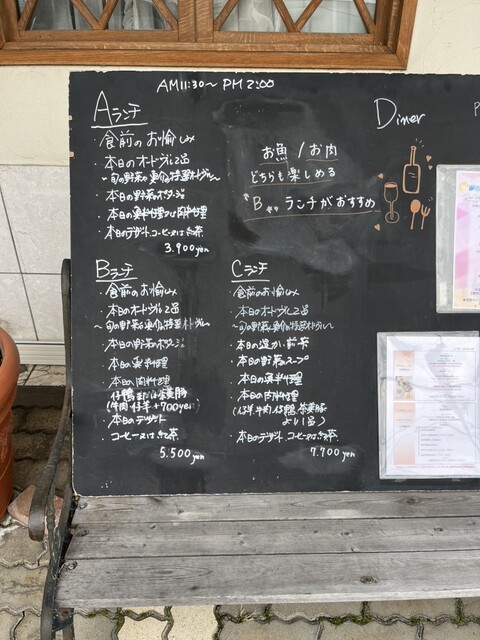 AM11:30～PM2:00
Aランチ
・食前のお愉しみ
・本日のオードヴル2品
・本日の野菜のポタージュ
・本日の魚料理 又は 肉料理
・本日のデザート.コーヒー又は紅茶
3.900yen
お魚/お肉
どちらも楽しめる
"B"ランチがおすすめ
Dinner
Bランチ
・食前のお愉しみ
・本日のオードヴル2品
・本日の野菜のポタージュ
・本日の魚料理
・本日の肉料理
仔鴨または茶美豚
(牛肉・仔羊+700yen)
・本日のデザート
・コーヒー又は紅茶
5.500yen
Cランチ
・食前のお愉しみ
・本日のオードヴル2品
・本日の温かい前菜
・本日の野菜のスープ
・本日の魚料理
・本日の肉料理
(仔羊.牛肉.仔鴨.茶美豚
より1品)
・本日のデザート.コーヒー又は紅茶
7.700yen